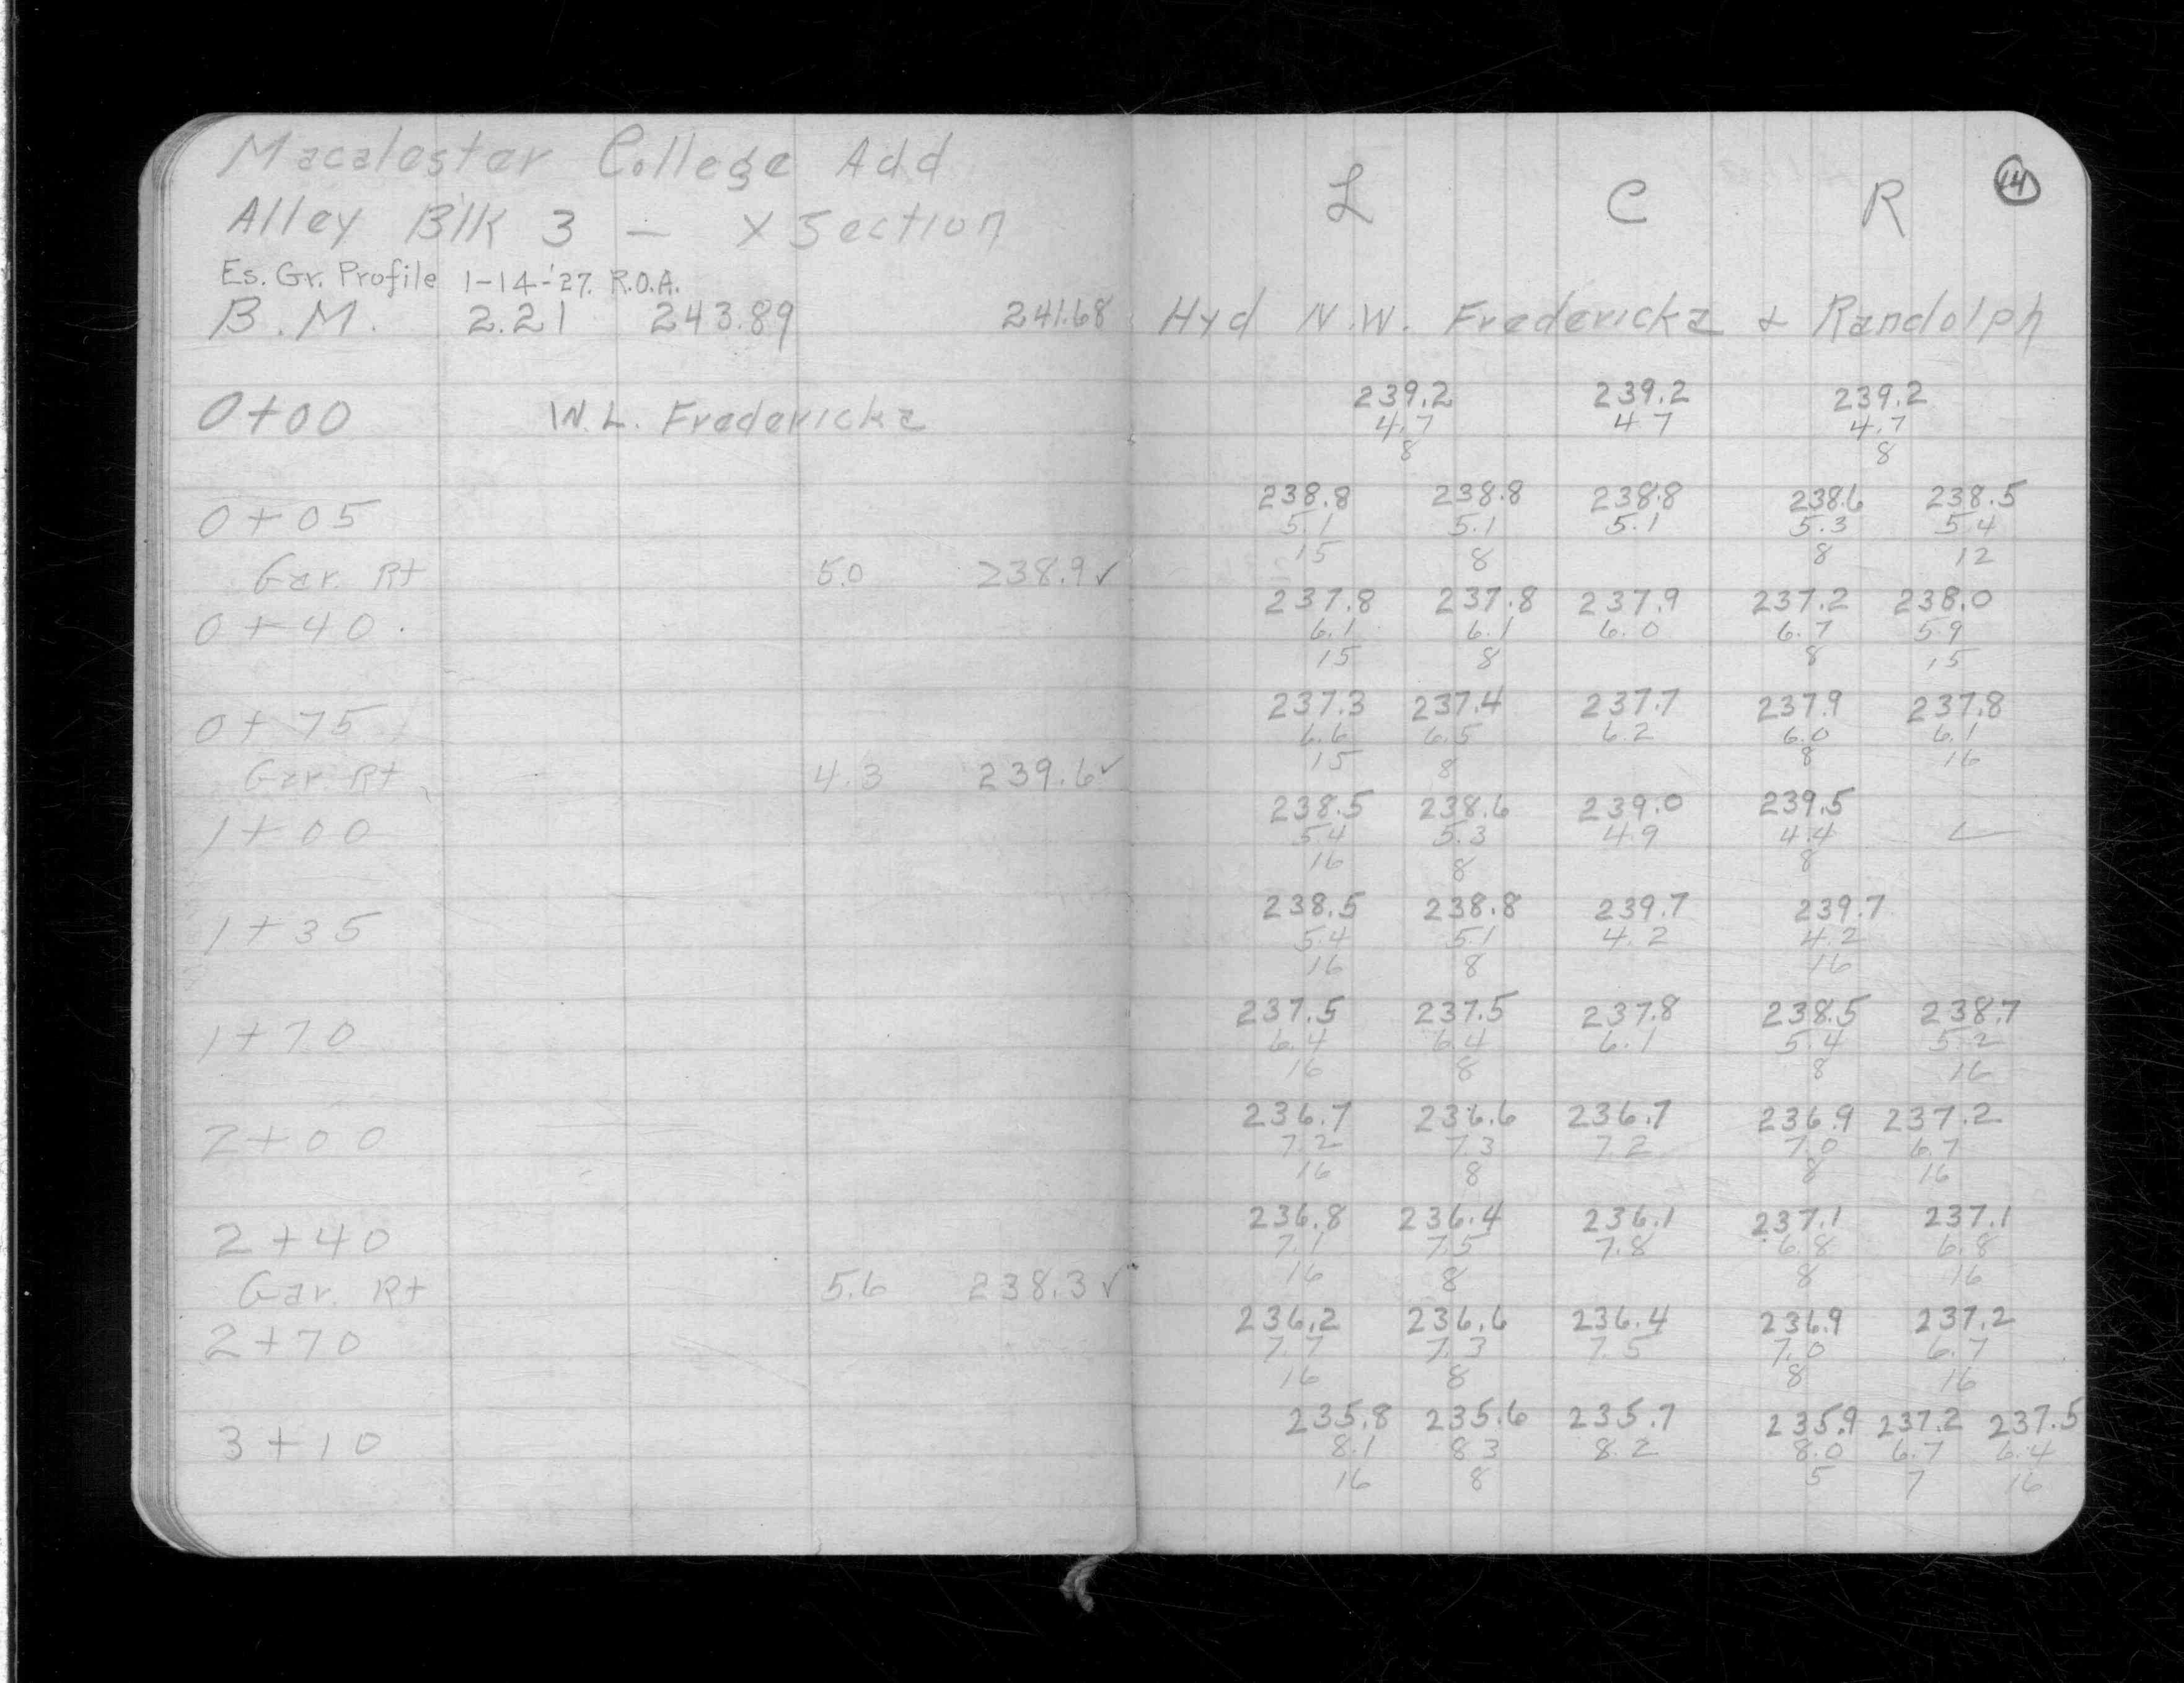 Macalester College Add
Alley Blk 3 — X Section
Es. Gr. Profile 1-14-'27. R.O.A.
B.M. 2.21 243.89 241.68
0+00 W.L. Fredericka
0+05
Gar. Rt 5.0 238.9 ✓
0+40
0+75
Gar. Rt 4.3 239.6 ✓
1+00
1+35
1+70
2+00
2+40
Gar. Rt 5.6 238.3 ✓
2+70
3+10
14
L C R
Hyd N.W. Fredericka & Randolph
239.2 239.2 239.2
4.7 4.7 4.7
8 8
238.8 238.8 238.8 238.6 238.5
5.1 5.1 5.1 5.3 5.4
15 8 8 12
237.8 237.8 237.9 237.2 238.0
6.1 6.1 6.0 6.7 5.9
15 8 8 15
237.3 237.4 237.7 237.9 237.8
6.6 6.5 6.2 6.0 6.1
15 8 8 16
238.5 238.6 239.0 239.5
5.4 5.3 4.9 4.4
16 8 8
238.5 238.8 239.7 239.7
5.4 5.1 4.2 4.2
16 8 16
237.5 237.5 237.8 238.5 238.7
6.4 6.4 6.1 5.4 5.2
16 8 8 16
236.7 236.6 236.7 236.9 237.2
7.2 7.3 7.2 7.0 6.7
16 8 8 16
236.8 236.4 236.1 237.1 237.1
7.1 7.5 7.8 6.8 6.8
16 8 8 16
236.2 236.6 236.4 236.9 237.2
7.7 7.3 7.5 7.0 6.7
16 8 8 16
235.8 235.6 235.7 235.9 237.2 237.5
8.1 8.3 8.2 8.0 6.7 6.4
16 8 5 7 16